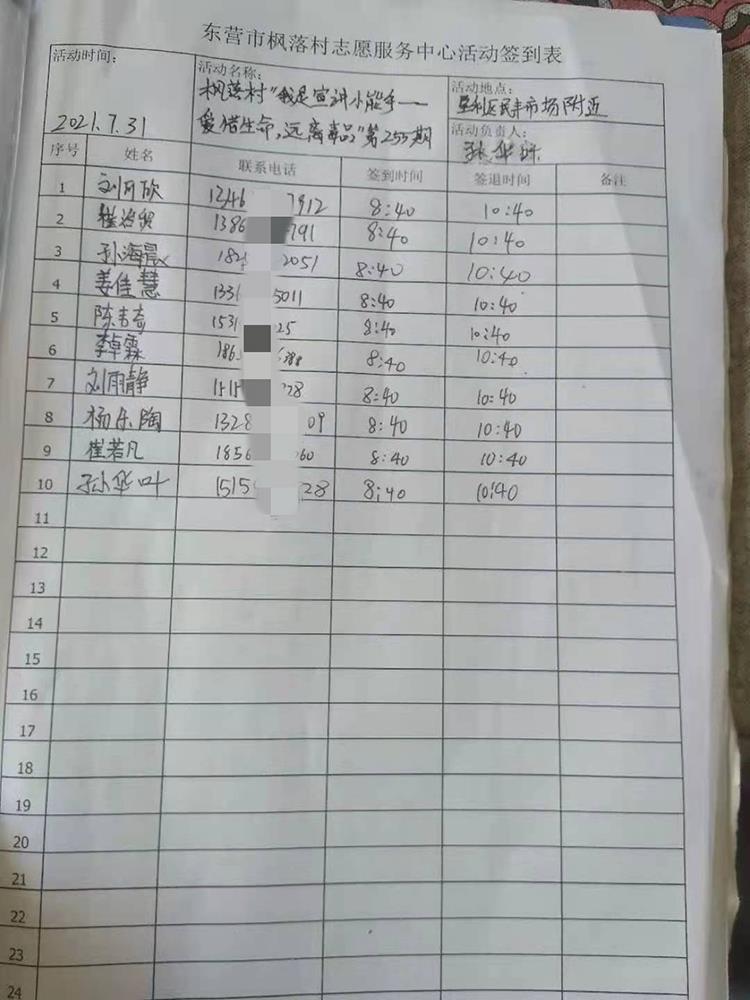 东营市枫落村志愿服务中心活动签到表
活动时间：
2021.7.31
活动名称：
枫落村"我是宣讲小能手——
爱惜生命,远离毒品"第255期
活动地点：
垦利区民丰市场附近
活动负责人：
孙华
序号 姓名 联系电话 签到时间 签退时间 备注
1 刘可欣 1246 7912 8:40 10:40
2 1386 791 8:40 10:40
3 孙海晨 182 2051 8:40 10:40
4 姜佳慧 1336 5011 8:40 10:40
5 陈 奇 1531 25 8:40 10:40
6 李卓霖 186 388 8:40 10:40
7 刘雨静 1515 28 8:40 10:40
8 杨乐陶 1328 09 8:40 10:40
9 崔若凡 1856 060 8:40 10:40
10 孙华叶 1515 28 8:40 10:40
11
12
13
14
15
16
17
18
19
20
21
22
23
24